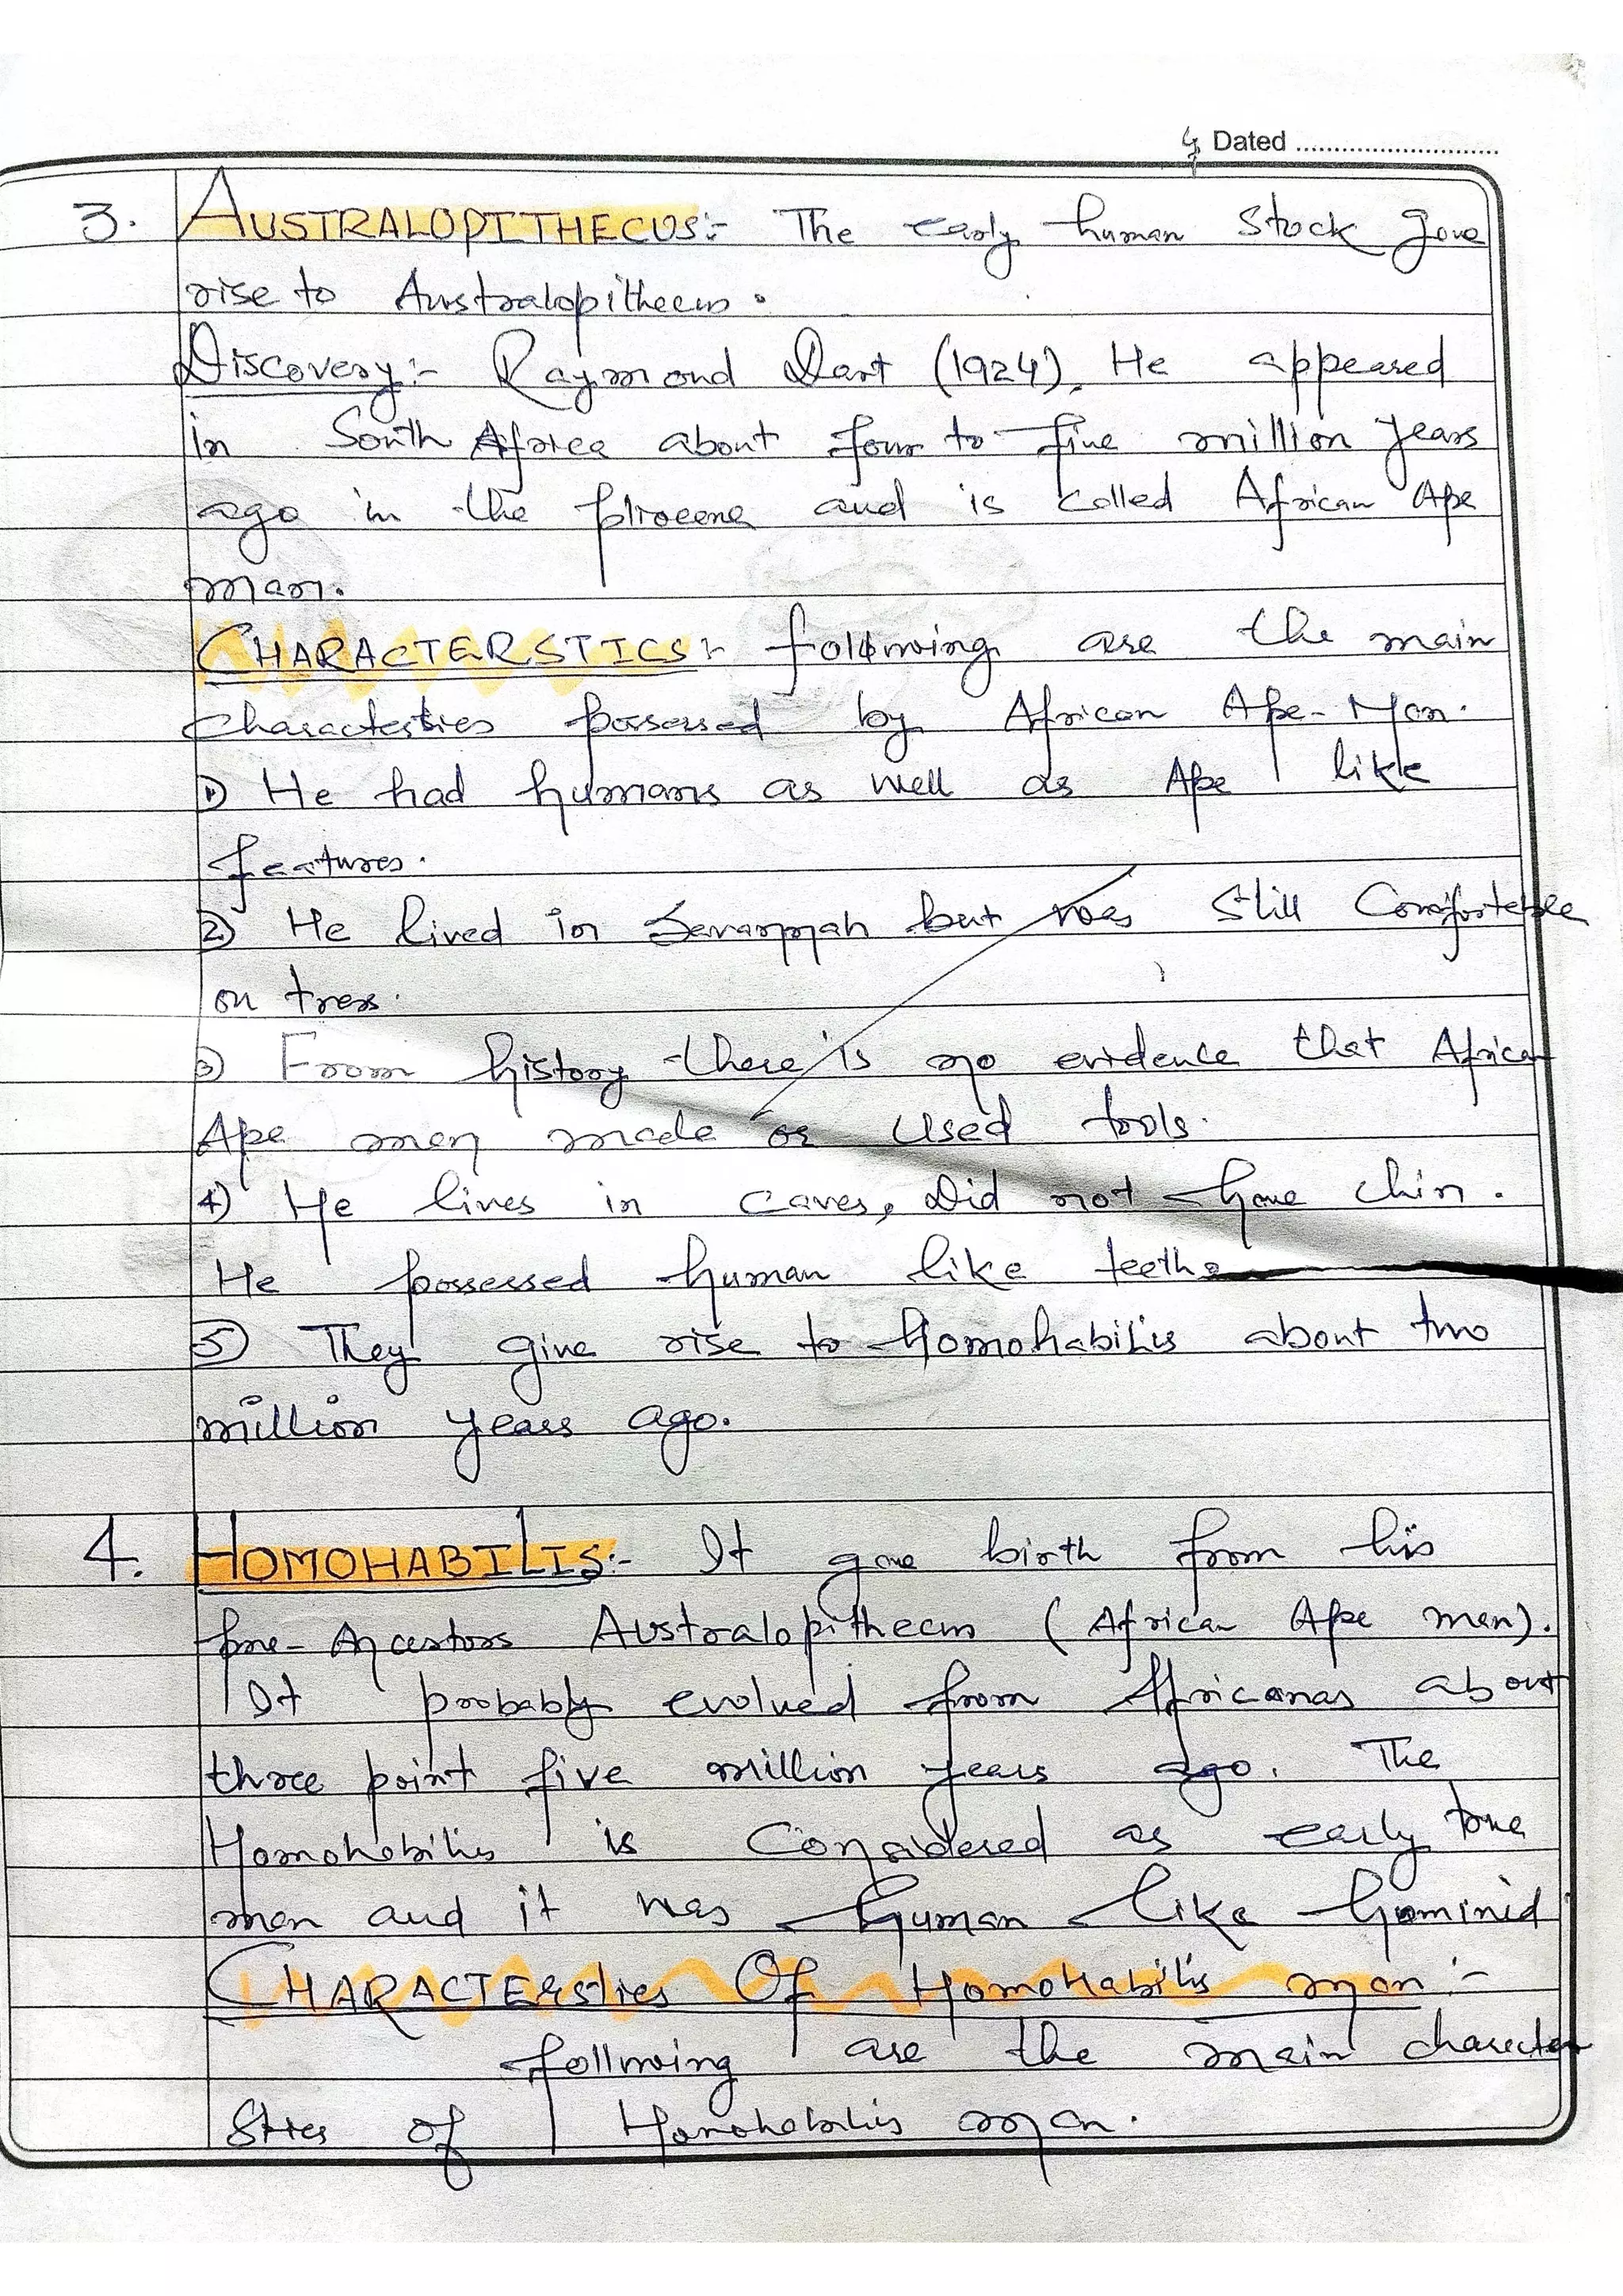 4 Dated ............................
3. AUSTRALOPITHECUS:- The early human stock gave
rise to Australopithecus.
Discovery:- Raymond Dart (1924). He appeared
in South Africa about four to five million years
ago in the pliocene and is called African Ape
man.
CHARACTERSTICS:- following are the main
characterstics possessed by African Ape-Man.
1) He had humans as well as Ape like
features.
2) He lived in Savannah but was still Comfortable
on trees.
3) From history there is no evidence that African
Ape men made or used tools.
4) He lives in caves, Did not have chin.
He possessed human like teeth.
5) They give rise to Homohabilis about two
million years ago.
4. HOMOHABILIS:- It gave birth from his
pre-Ancestors Australopithecus (African Ape men).
It probably evolved from Africanas about
three point five million years ago. The
Homohabilis is Considered as early true
man and it was human like hominid
CHARACTERstics Of Homohabilis man:-
following are the main character
stics of Homohabilis man.